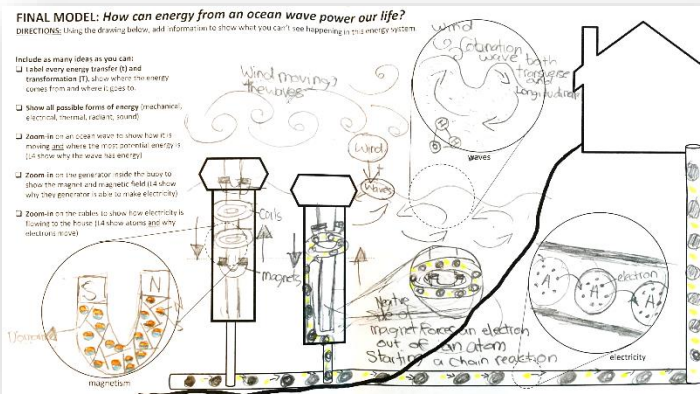 FINAL MODEL: How can energy from an ocean wave power our life?
DIRECTIONS: Using the drawing below, add information to show what you can't see happening in this energy system
Include as many ideas as you can:
Label every energy transfer (t) and
transformation (T), show where the energy
comes from and where it goes to.
Show all possible forms of energy (mechanical,
electrical, thermal, radiant, sound)
Zoom-in on an ocean wave to show how it is
moving and where the most potential energy is
(L4 show why the wave has energy)
Zoom-in on the generator inside the buoy to
show the magnet and magnetic field (L4 show
why they generator is able to make electricity)
Zoom-in on the cables to show how electricity is
flowing to the house (L4 show atoms and why
electrons move)
Wind moving
the waves
wind
wave both
transverse
and
waves
Wind
t
Waves
coils
magnets
S N
N
S
magnetism
side of
magnet forces an electron
out of an atom
Starting a chain reaktion
electron
A A A
electricity